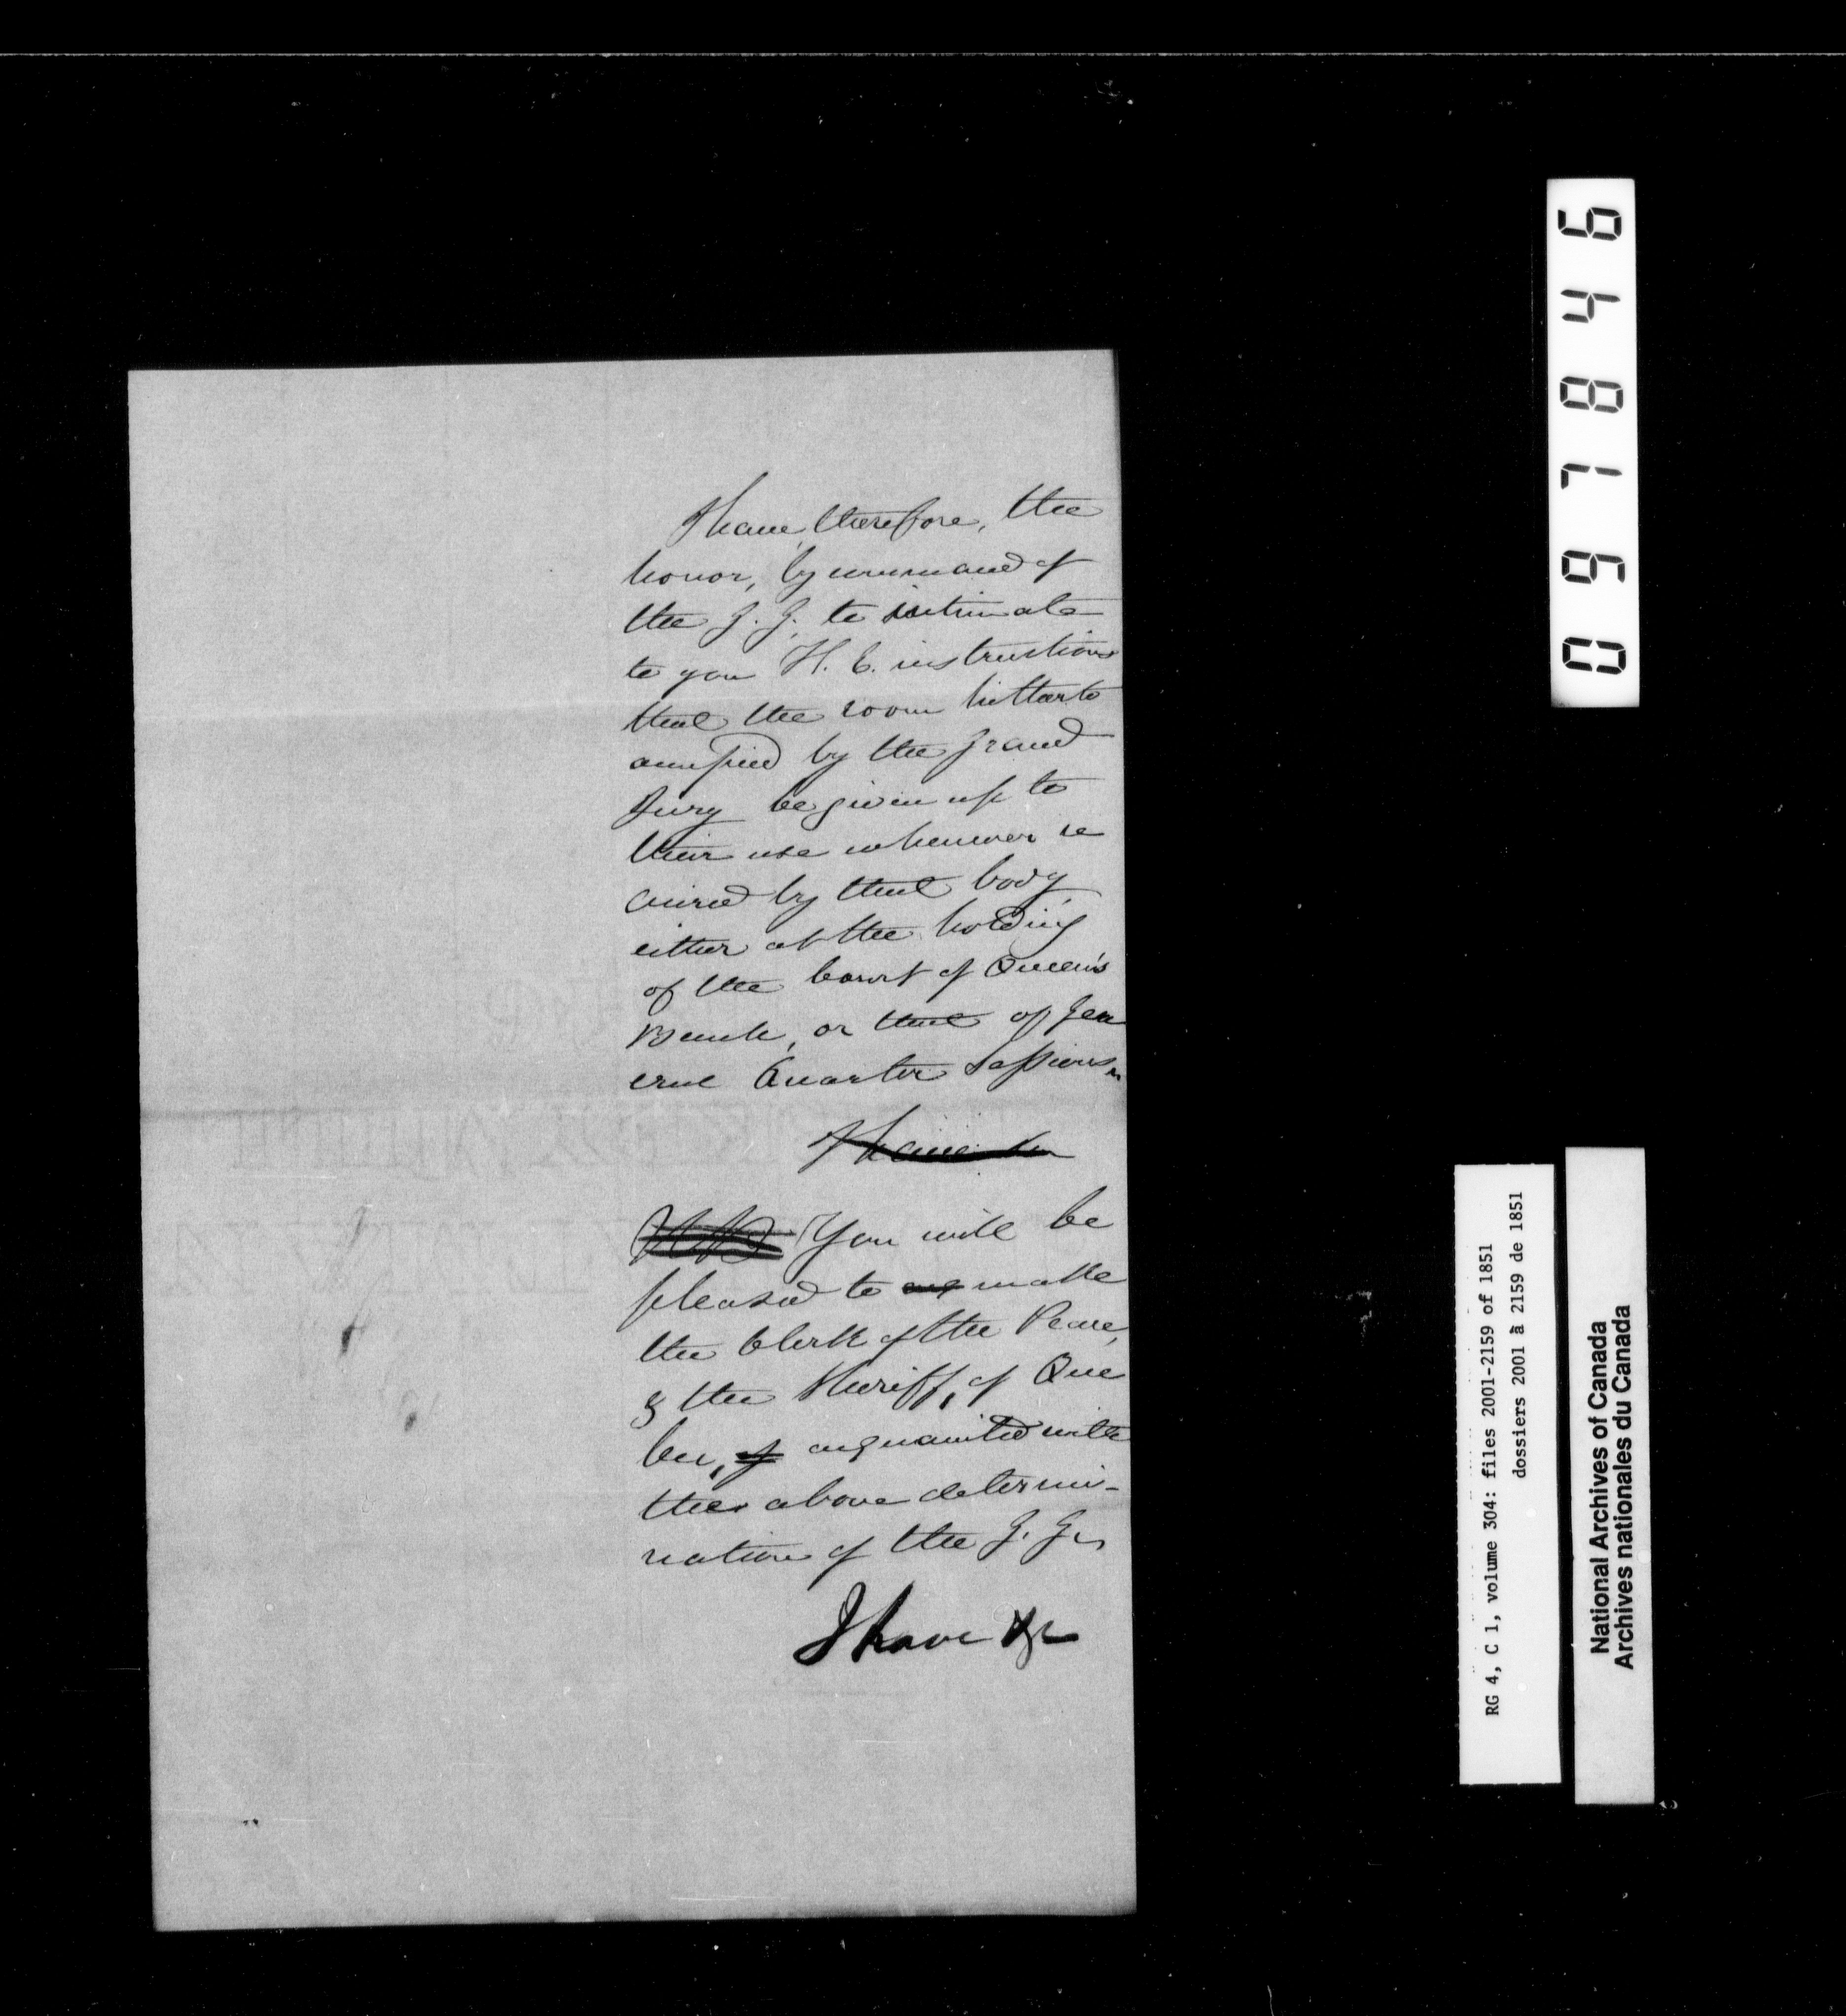 I have, therefore, the
honor, by command of
the G. G. to intimate
to you H. E. instructions
that the room hitherto
occupied by the Grand
Jury be given up to
their use whenever re
quired by that body,
either at the holding
of the Court of Queen's
Bench, or that of Gen
eral Quarter Sessions.
I have
You will be
pleased to make
the Clerk of the Peace,
& the Sheriff, of Que
bec, of acquainted with
the above determi-
nation of the G. G.
I have &c
097846
RG 4, C 1, volume 304: files 2001-2159 of 1851
dossiers 2001 à 2159 de 1851
National Archives of Canada
Archives nationales du Canada